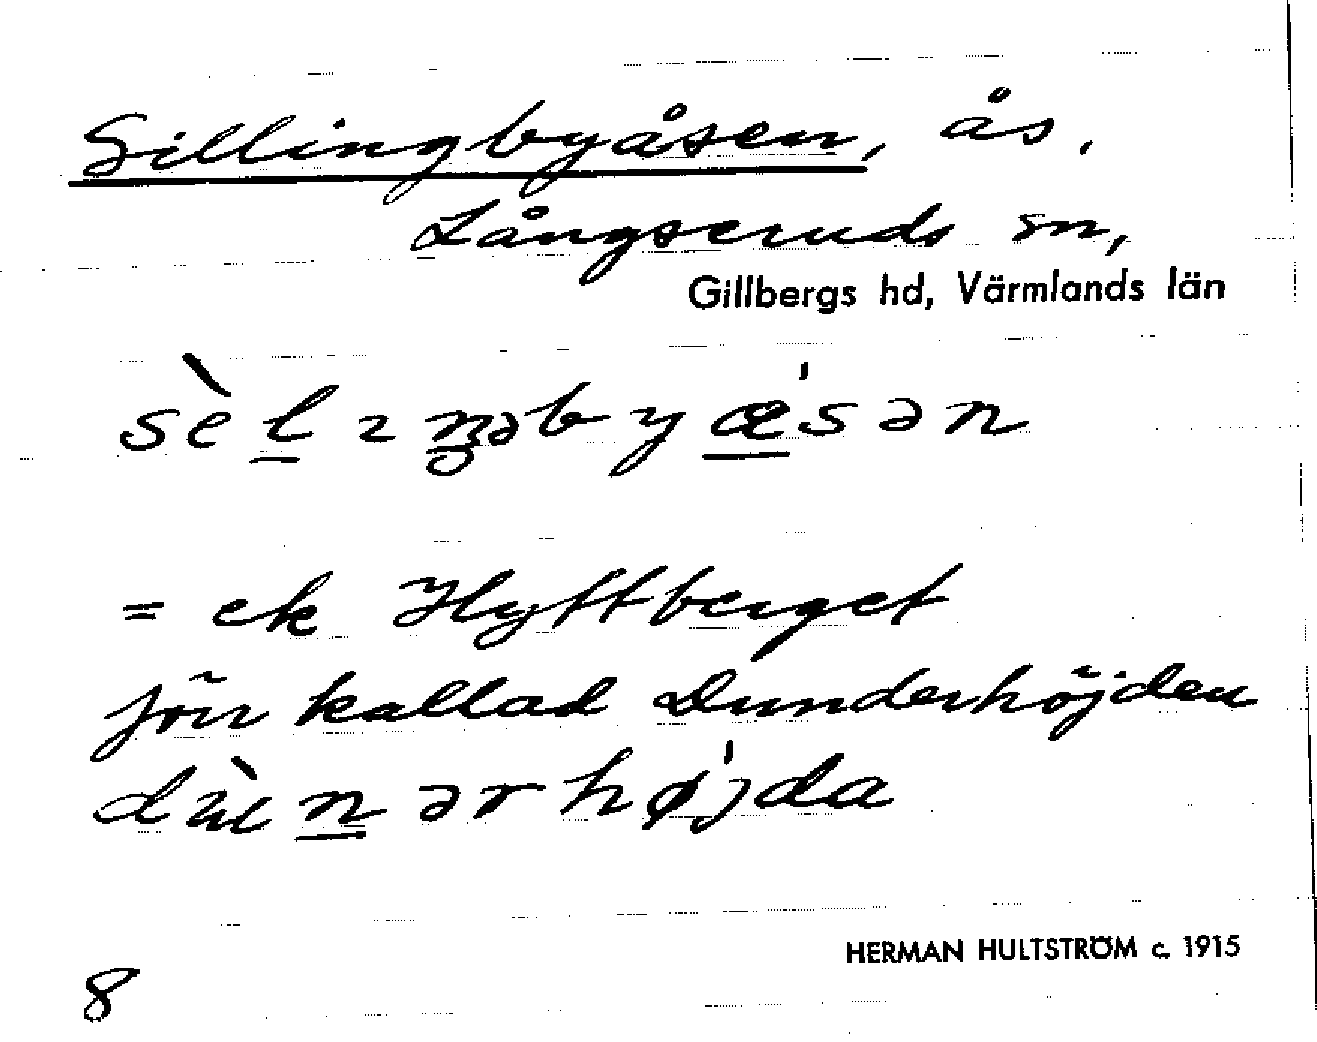 Sillingbyåsen, ås,
Långseruds sn,
Gillbergs hd, Värmlands län
= ek Hyttberget
förr kallad Dunderhöjden
HERMAN HULTSTRÖM c. 1915
8